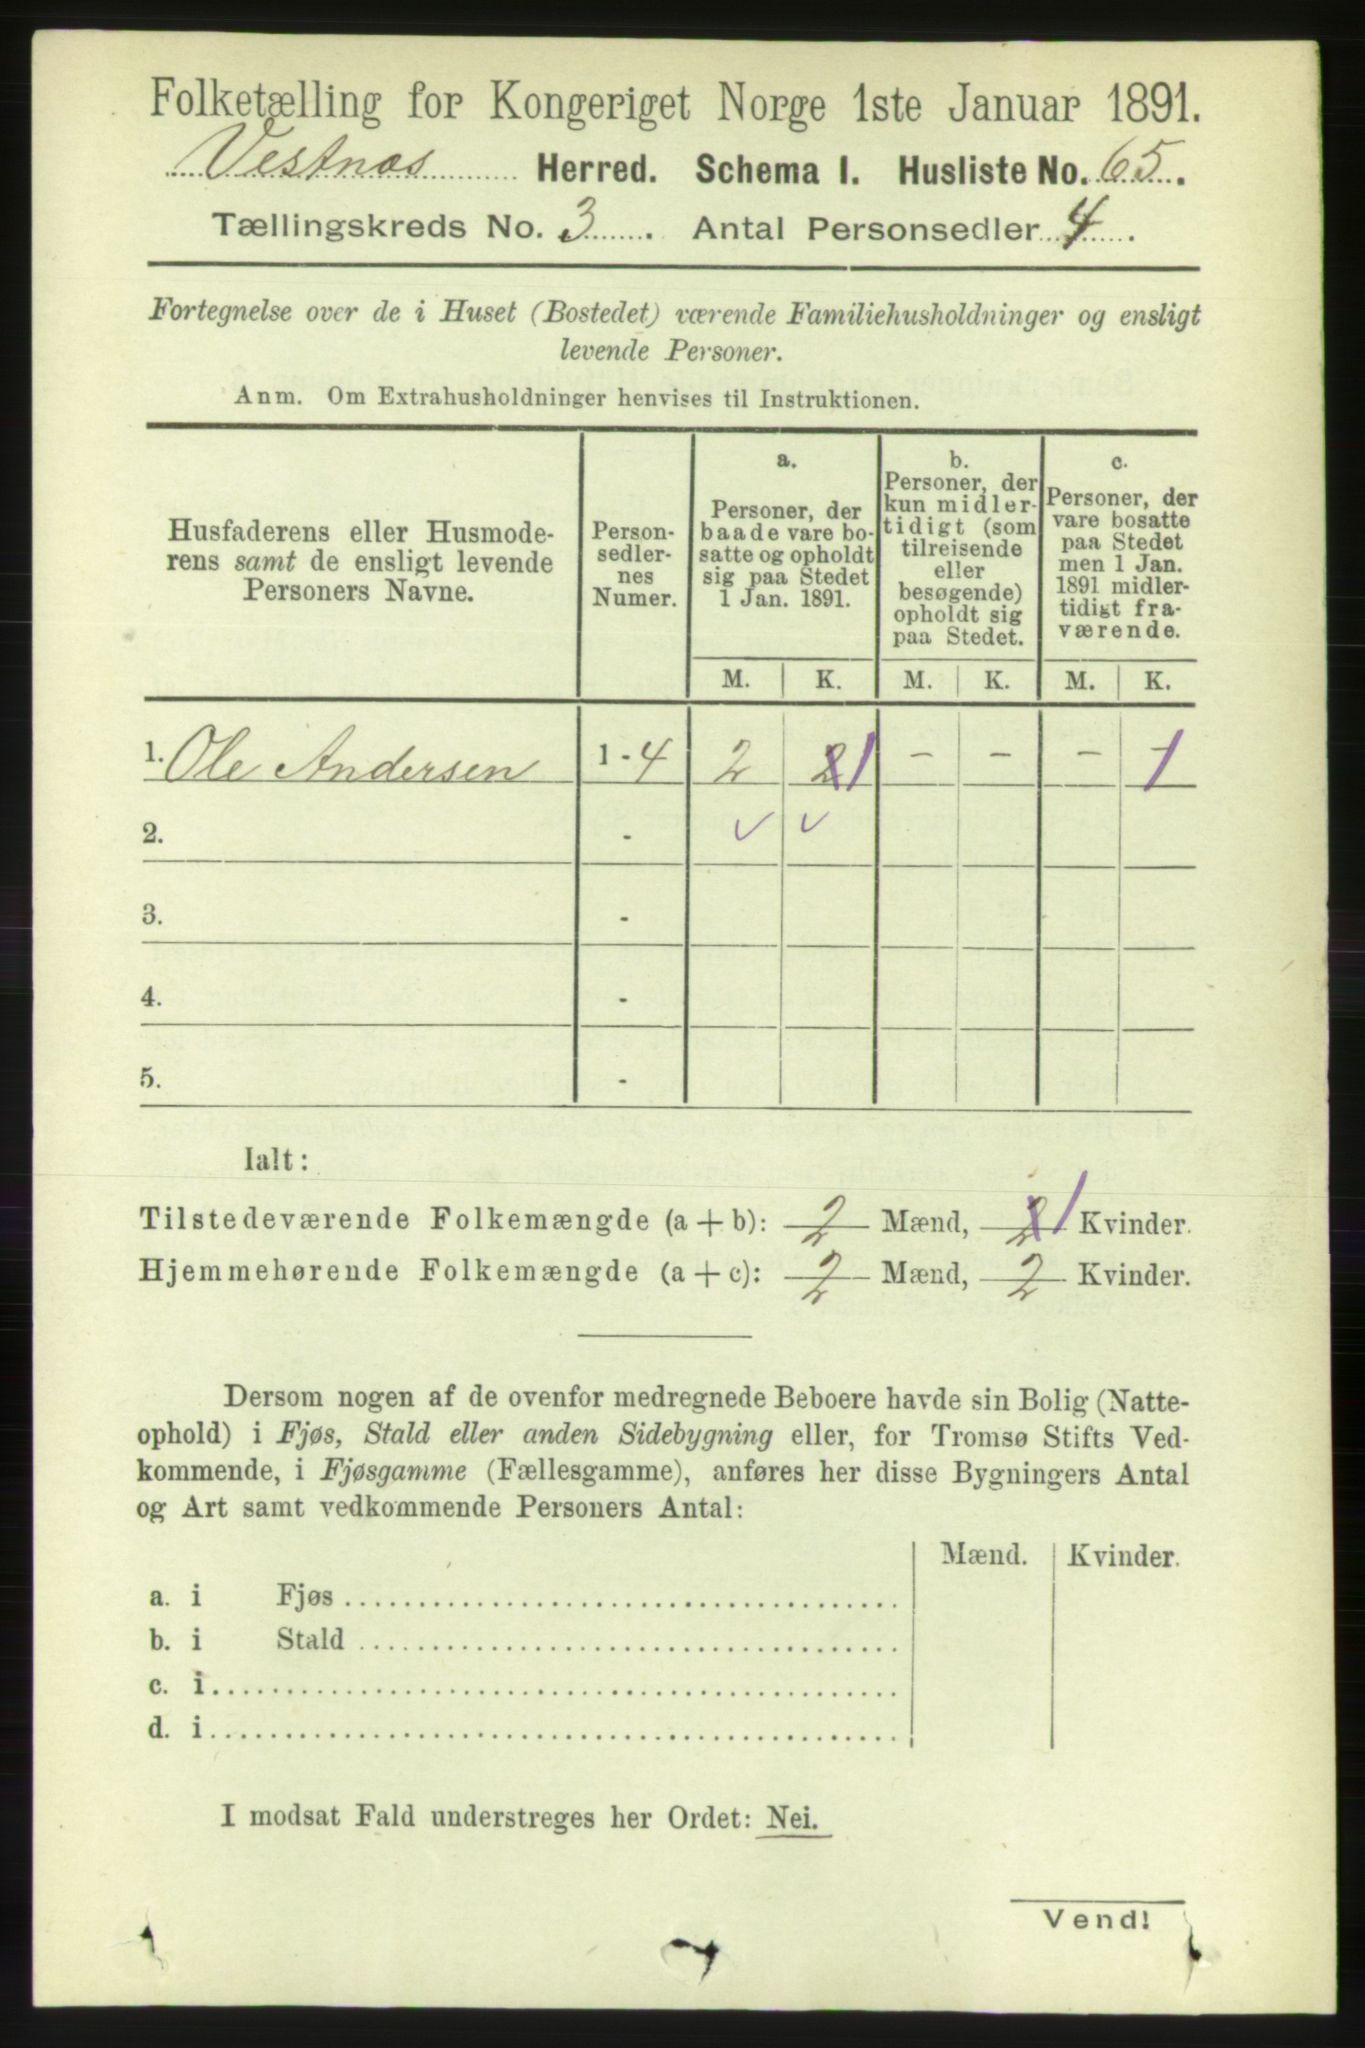 Folketælling for Kongeriget Norge 1ste Januar 1891.
Vestnæs Herred. Schema I. Husliste No. 65.
Tællingskreds No. 3. Antal Personsedler 4.
Fortegnelse over de i Huset (Bostedet) værende Familiehusholdninger og ensligt
levende Personer.
Anm. Om Extrahusholdninger henvises til Instruktionen.
Husfaderens eller Husmode-
rens samt de ensligt levende
Personers Navne.
Person-
sedler-
nes
Numer.
a.
Personer, der
baade vare bo-
satte og opholdt
sig paa Stedet
1 Jan. 1891.
b.
Personer, der
kun midler-
tidigt (som
tilreisende
eller
besøgende)
opholdt sig
paa Stedet.
c.
Personer, der
vare bosatte
paa Stedet
men 1 Jan.
1891 midler-
tidigt fra-
værende.
M. K. M. K. M. K.
1. Ole Andersen 1 - 4 2 2 1 - - - 1
2. - ✓ ✓
3. -
4. -
5. -
Ialt:
Tilstedeværende Folkemængde (a + b): 2 Mænd, 2 1 Kvinder.
Hjemmehørende Folkemængde (a + c): 2 Mænd, 2 Kvinder.
Dersom nogen af de ovenfor medregnede Beboere havde sin Bolig (Natte-
ophold) i Fjøs, Stald eller anden Sidebygning eller, for Tromsø Stifts Ved-
kommende, i Fjøsgamme (Fællesgamme), anføres her disse Bygningers Antal
og Art samt vedkommende Personers Antal:
Mænd. Kvinder.
a. i Fjøs
b. i Stald
c. i
d. i
I modsat Fald understreges her Ordet: Nei.
Vend!